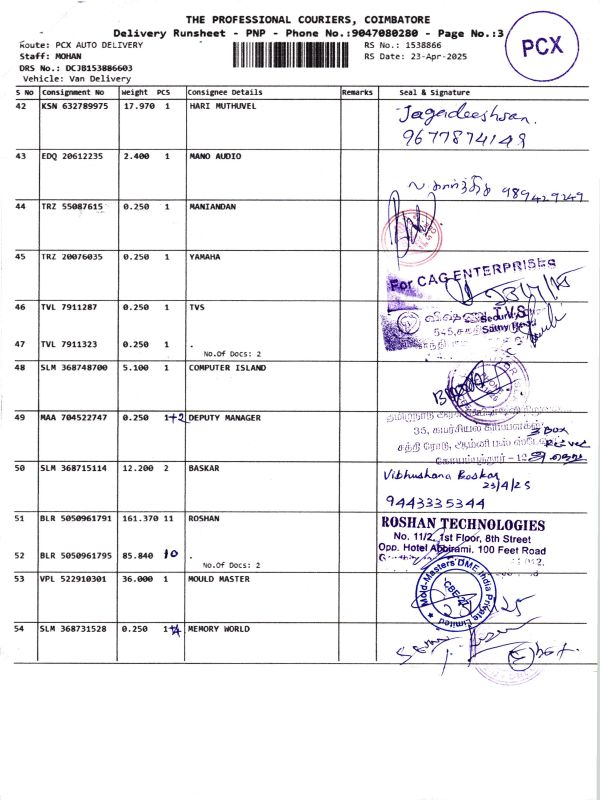 THE PROFESSIONAL COURIERS, COIMBATORE
Delivery Runsheet - PNP - Phone No.:9047080280 - Page No.:3
PCX
Route: PCX AUTO DELIVERY
RS No.: 1538866
Staff: MOHAN
RS Date: 23-Apr-2025
DRS No.: DCJB153886603
Vehicle: Van Delivery
S No Consignment No Weight PCS Consignee Details Remarks Seal & Signature
42 KSN 632789975 17.970 1 HARI MUTHUVEL Jagadeeshwan.
9677874148
43 EDQ 20612235 2.400 1 MANO AUDIO
9894229249
44 TRZ 55087615 0.250 1 MANIANDAN
45 TRZ 20076035 0.250 1 YAMAHA
For CAG ENTERPRISES
46 TVL 7911287 0.250 1 TVS
T.V.S
Security
47 TVL 7911323 0.250 1 .
No.Of Docs: 2
48 SLM 368748700 5.100 1 COMPUTER ISLAND
49 MAA 704522747 0.250 1+2 DEPUTY MANAGER
3 Box
50 SLM 368715114 12.200 2 BASKAR
Vibhushana Baskar
23/4/25
9443335344
51 BLR 5050961791 161.370 11 ROSHAN
ROSHAN TECHNOLOGIES
No. 11/2, 1st Floor, 8th Street
Opp. Hotel Abbirami, 100 Feet Road
52 BLR 5050961795 85.840 10 .
No.Of Docs: 2
53 VPL 522910301 36.000 1 MOULD MASTER
Mold-Masters DME India Private Limited
CBE-21
54 SLM 368731528 0.250 1 MEMORY WORLD